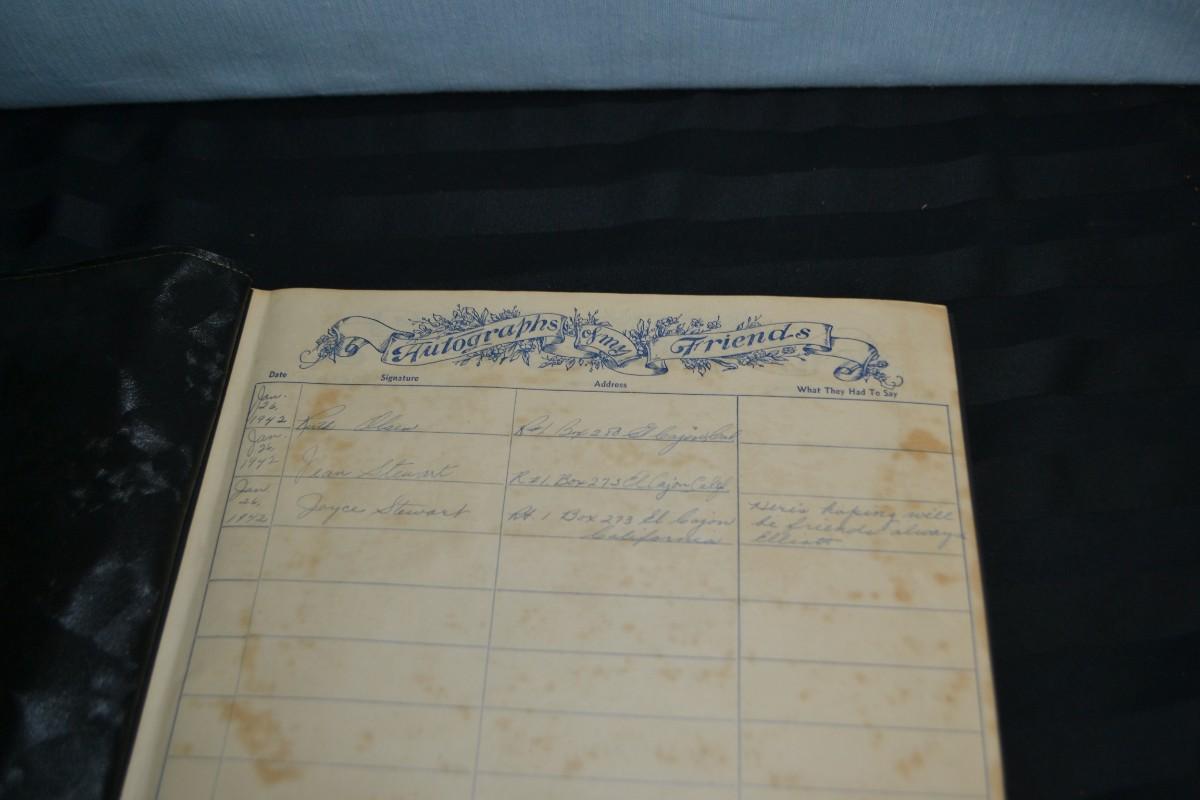 Autographs of my Friends
Date Signature Address What They Had To Say
Jan. 26, 1942 Ruth Olsen Rt 1 Box 250 El Cajon Calif
Jan. 26 1942 Jean Stewart R #1 Box 273 El Cajon Calif
Jan 26, 1942 Joyce Stewart Rt. 1 Box 273 El Cajon California Here's hoping will be friends always Elliott